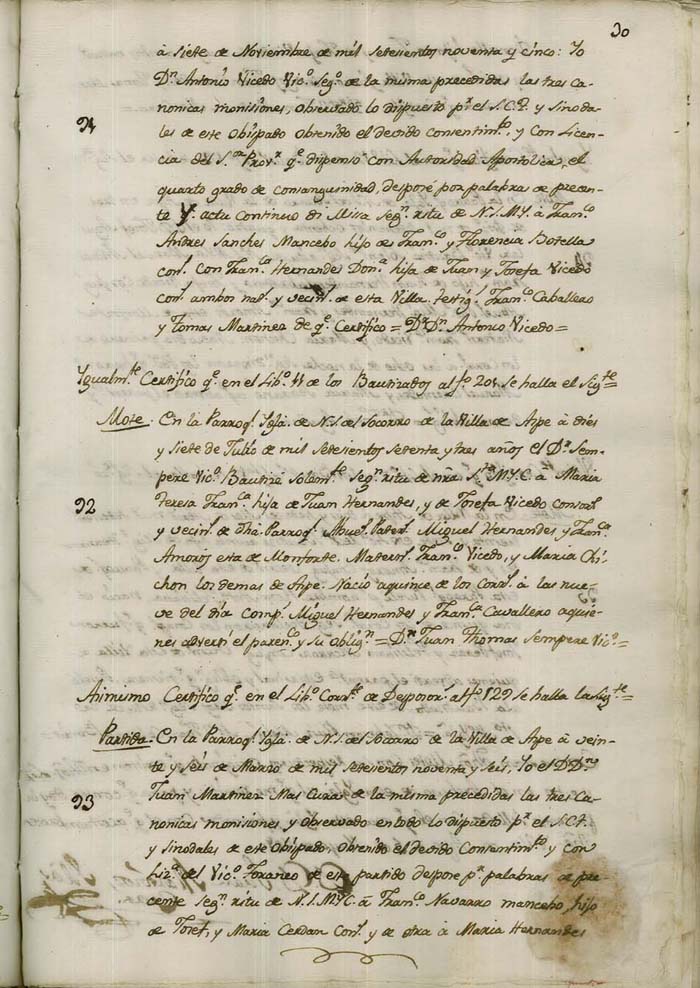 30
à siete de Noviembre de mil setesientos noventa y cinco: Yo
Dn. Antonio Vicedo Vico. Sego. de la misma precedidas las tres ca-
nonicas monisiones, observado lo dispuesto pr. el S.C.T. y sinoda-
91
les de este obispado obtenido el devido consentimto. y con Licen-
cia del Sor. Provr. qe. dispensó con Autoridad Apostolica, el
quarto grado de consanguinidad, desposé por palabras de precen-
te y actu continuo di Misa segn. ritu de N.S.M.Y. à Franco.
Andres Sanches Mancebo hijo de Franco. y Florencia Botella
cons. con Franca. Hernandes Donca. hija de Juan y Josefa Vicedo
cons. ambos nats. y vecins. de esta Villa. testigs. Franco. Caballero
y Tomas Martinez de qe. Certifico = Dr. Dn. Antonio Vicedo =
Ygualmte. Certifico qe. en el Libo. 11 de los Bautizados al fo. 201 se halla el Sigte. =
Mote. En la Parroql. Yglā. de N.S. del Socorro de la Villa de Aspe à dies
y siete de Julio de mil setesientos setenta y tres años el Dr. Sem-
pere Vico. Bautizé solemte. segn. ritu de nra. Sta. M.Y.C. à Maria
92
Teresa Franca. hija de Juan Hernandes, y de Josefa Vicedo consors.
y vecins. de dha. Parroql. Abuels. Paters. Miguel Hernandes y Franca.
Amorós esta de Monforte. Materns. Franco. Vicedo, y Maria Chi-
chon los demas de Aspe. Nació a quince de los corrs. à las nue-
ve del día comps. Miguel Hernandes y Franca. Cavallero a quie-
nes advertí el parenco. y su oblign. = Dr. Juan Thomas Sempere Vico. =
Asimismo Certifico qe. en el Libo. Corrte. de Desposors. al fo. 129 se halla la Sigte. =
Partida. En la Parroql. Yglā. de N.S. del Socorro de la Villa de Aspe à vein-
te y seis de Marzo de mil setesientos noventa y seis, Yo el Dr. Dn.
93
Juan Martinez Mas Cura de la misma precedidas las tres Ca-
nonicas monisiones y observado en todo lo dispuesto pr. el S.C.T.
y sinodales de este Obispado, obtenido el devido Consentimto. y con
Liza. del Vico. Foraneo de este partido despose pr. palabras de pre-
cente segn. ritu de N.S.M.Y.C. à Franco. Navarro mancebo, hijo
de Josef, y Maria Cerdan Cons. y de otra à Maria Hernandes